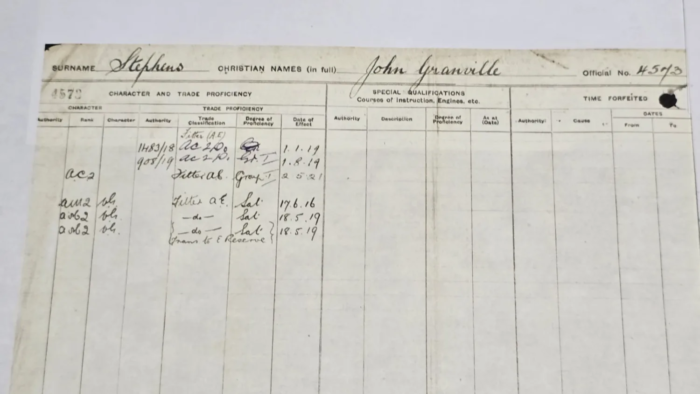 SURNAME Stephens CHRISTIAN NAMES (in full) John Granville Official No. 4573
4573 CHARACTER AND TRADE PROFICIENCY SPECIAL QUALIFICATIONS TIME FORFEITED
Courses of Instruction, Engines, etc.
CHARACTER TRADE PROFICIENCY DATES
Authority Rank Character Authority Trade Classification Degree of Proficiency Date of Effect Authority Description Degree of Proficiency As at (Date) Authority Cause From To
Fitter (AE)
1483/18 1.1.19
908/19 I 1.8.19
ac2 Fitter AE Group I 2 5 21
am2 vg Fitter AE. Sat 17.6.16
vg -do- Sat 18.5.19
vg. -do- Sat 18.5.19
Trans to E Reserve